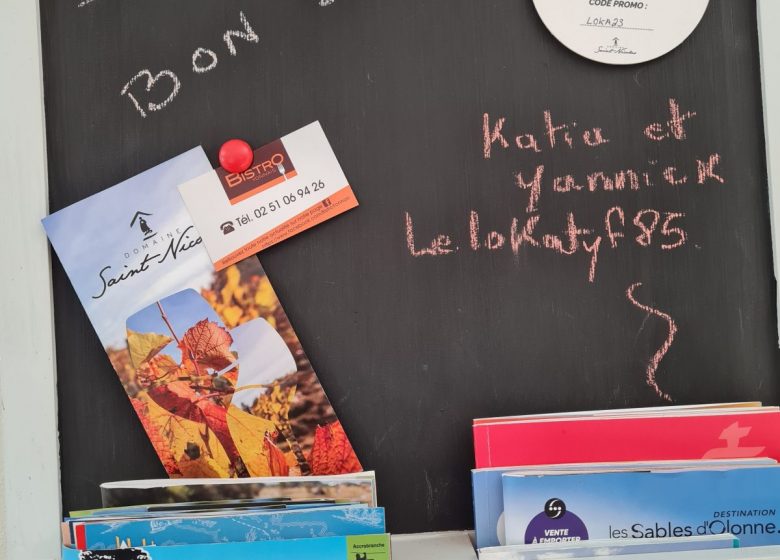 CODE PROMO :
LOKA23
Saint-Nicolas
BON
Katia et
Yannick
LelokaTyf85
BISTRO
Tél. 02 51 06 94 26
DOMAINE
Saint-Nico
DESTINATION
les Sables d'Olonne
VENTE
À EMPORTER